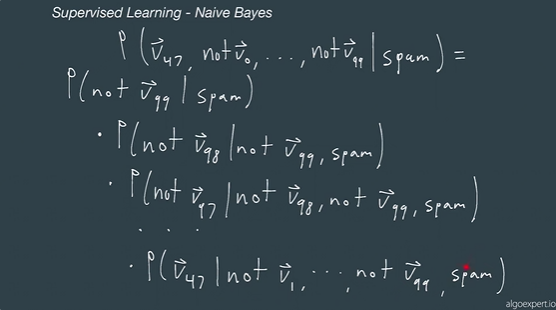 Supervised Learning - Naive Bayes
P(v⃗47, not v⃗0, ..., not v⃗99 | spam) =
P(not v⃗99 | spam)
· P(not v⃗98 | not v⃗99, spam)
· P(not v⃗97 | not v⃗98, not v⃗99, spam)
. . .
· P(v⃗47 | not v⃗1, ..., not v⃗99, spam)
algoexpert.io